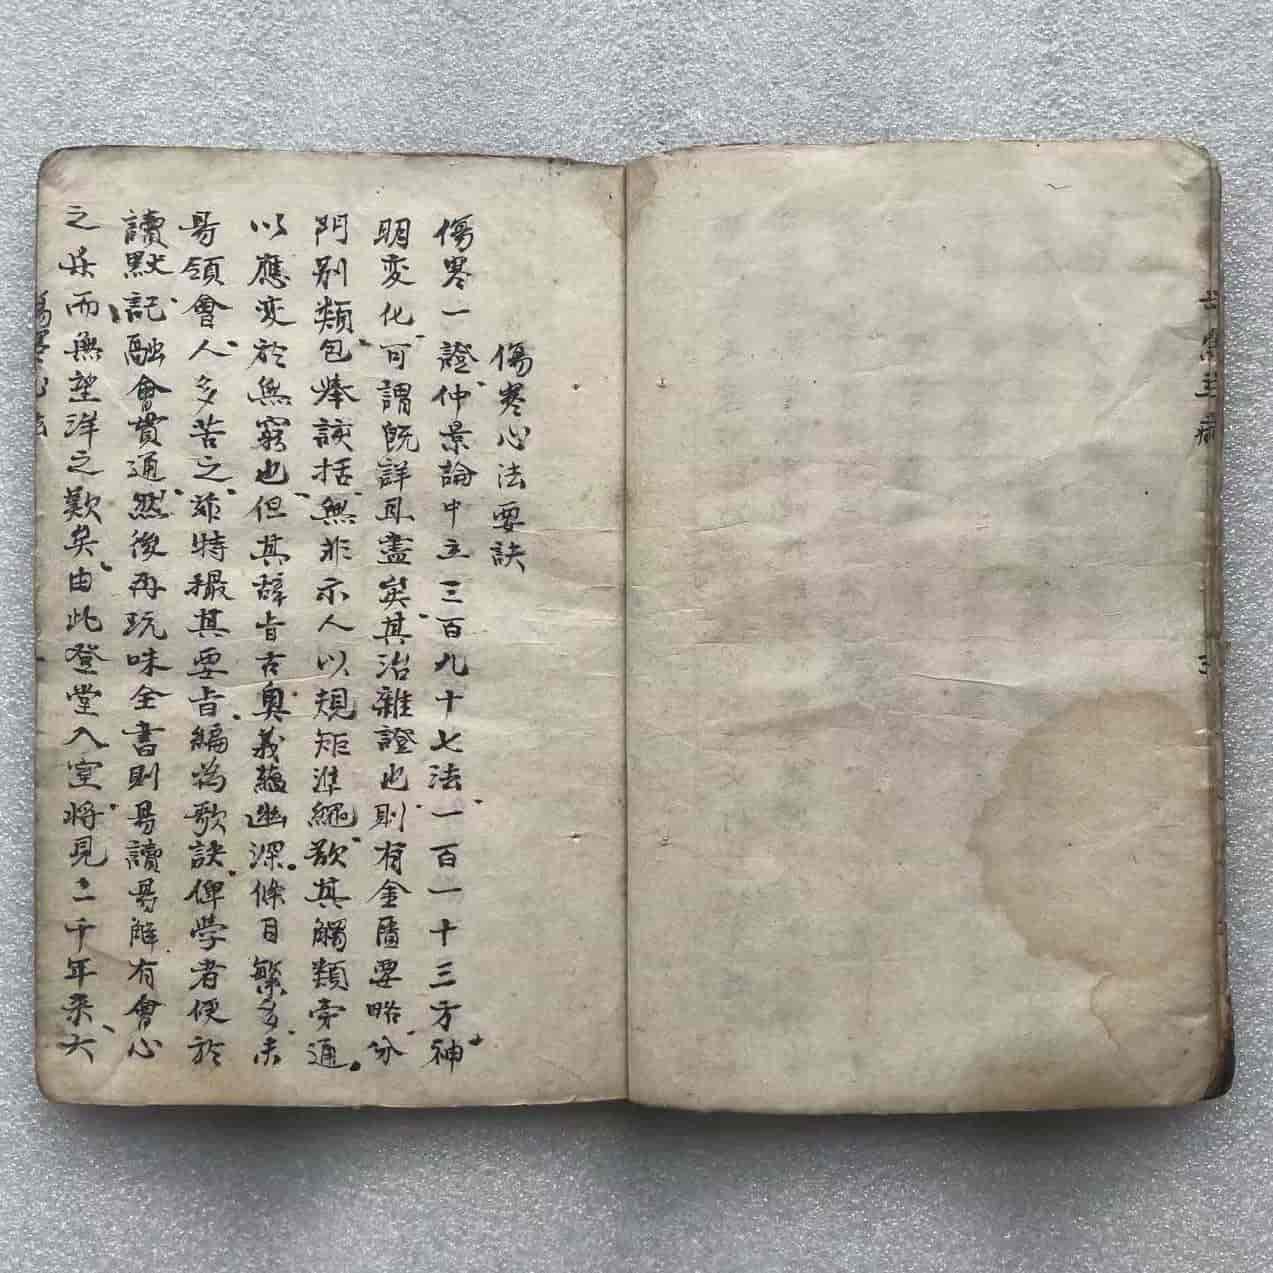 傷寒心法要訣
傷寒一證仲景論中立三百九十七法一百一十三方神
明変化可謂旣詳且盡矣其治雜證也則有金匱要略分
門別類包舉該括無非示人以規矩準繩欲其觸類旁通
以應変於無窮也但其辞旨古奧義蘊幽深條目繁多未
易領會人多苦之玆特撮其要旨編為歌訣俾學者便於
讀默記融會貫通然後再玩味全書則易讀易解有會心
之樂而無望洋之歎矣由此登堂入室将見二千年来大
傷寒心法